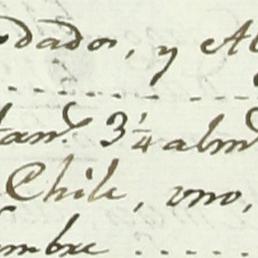 dados, y Al
tan.ˢ 3¼ alm.ˢ
Chile, vno,
mbre .....